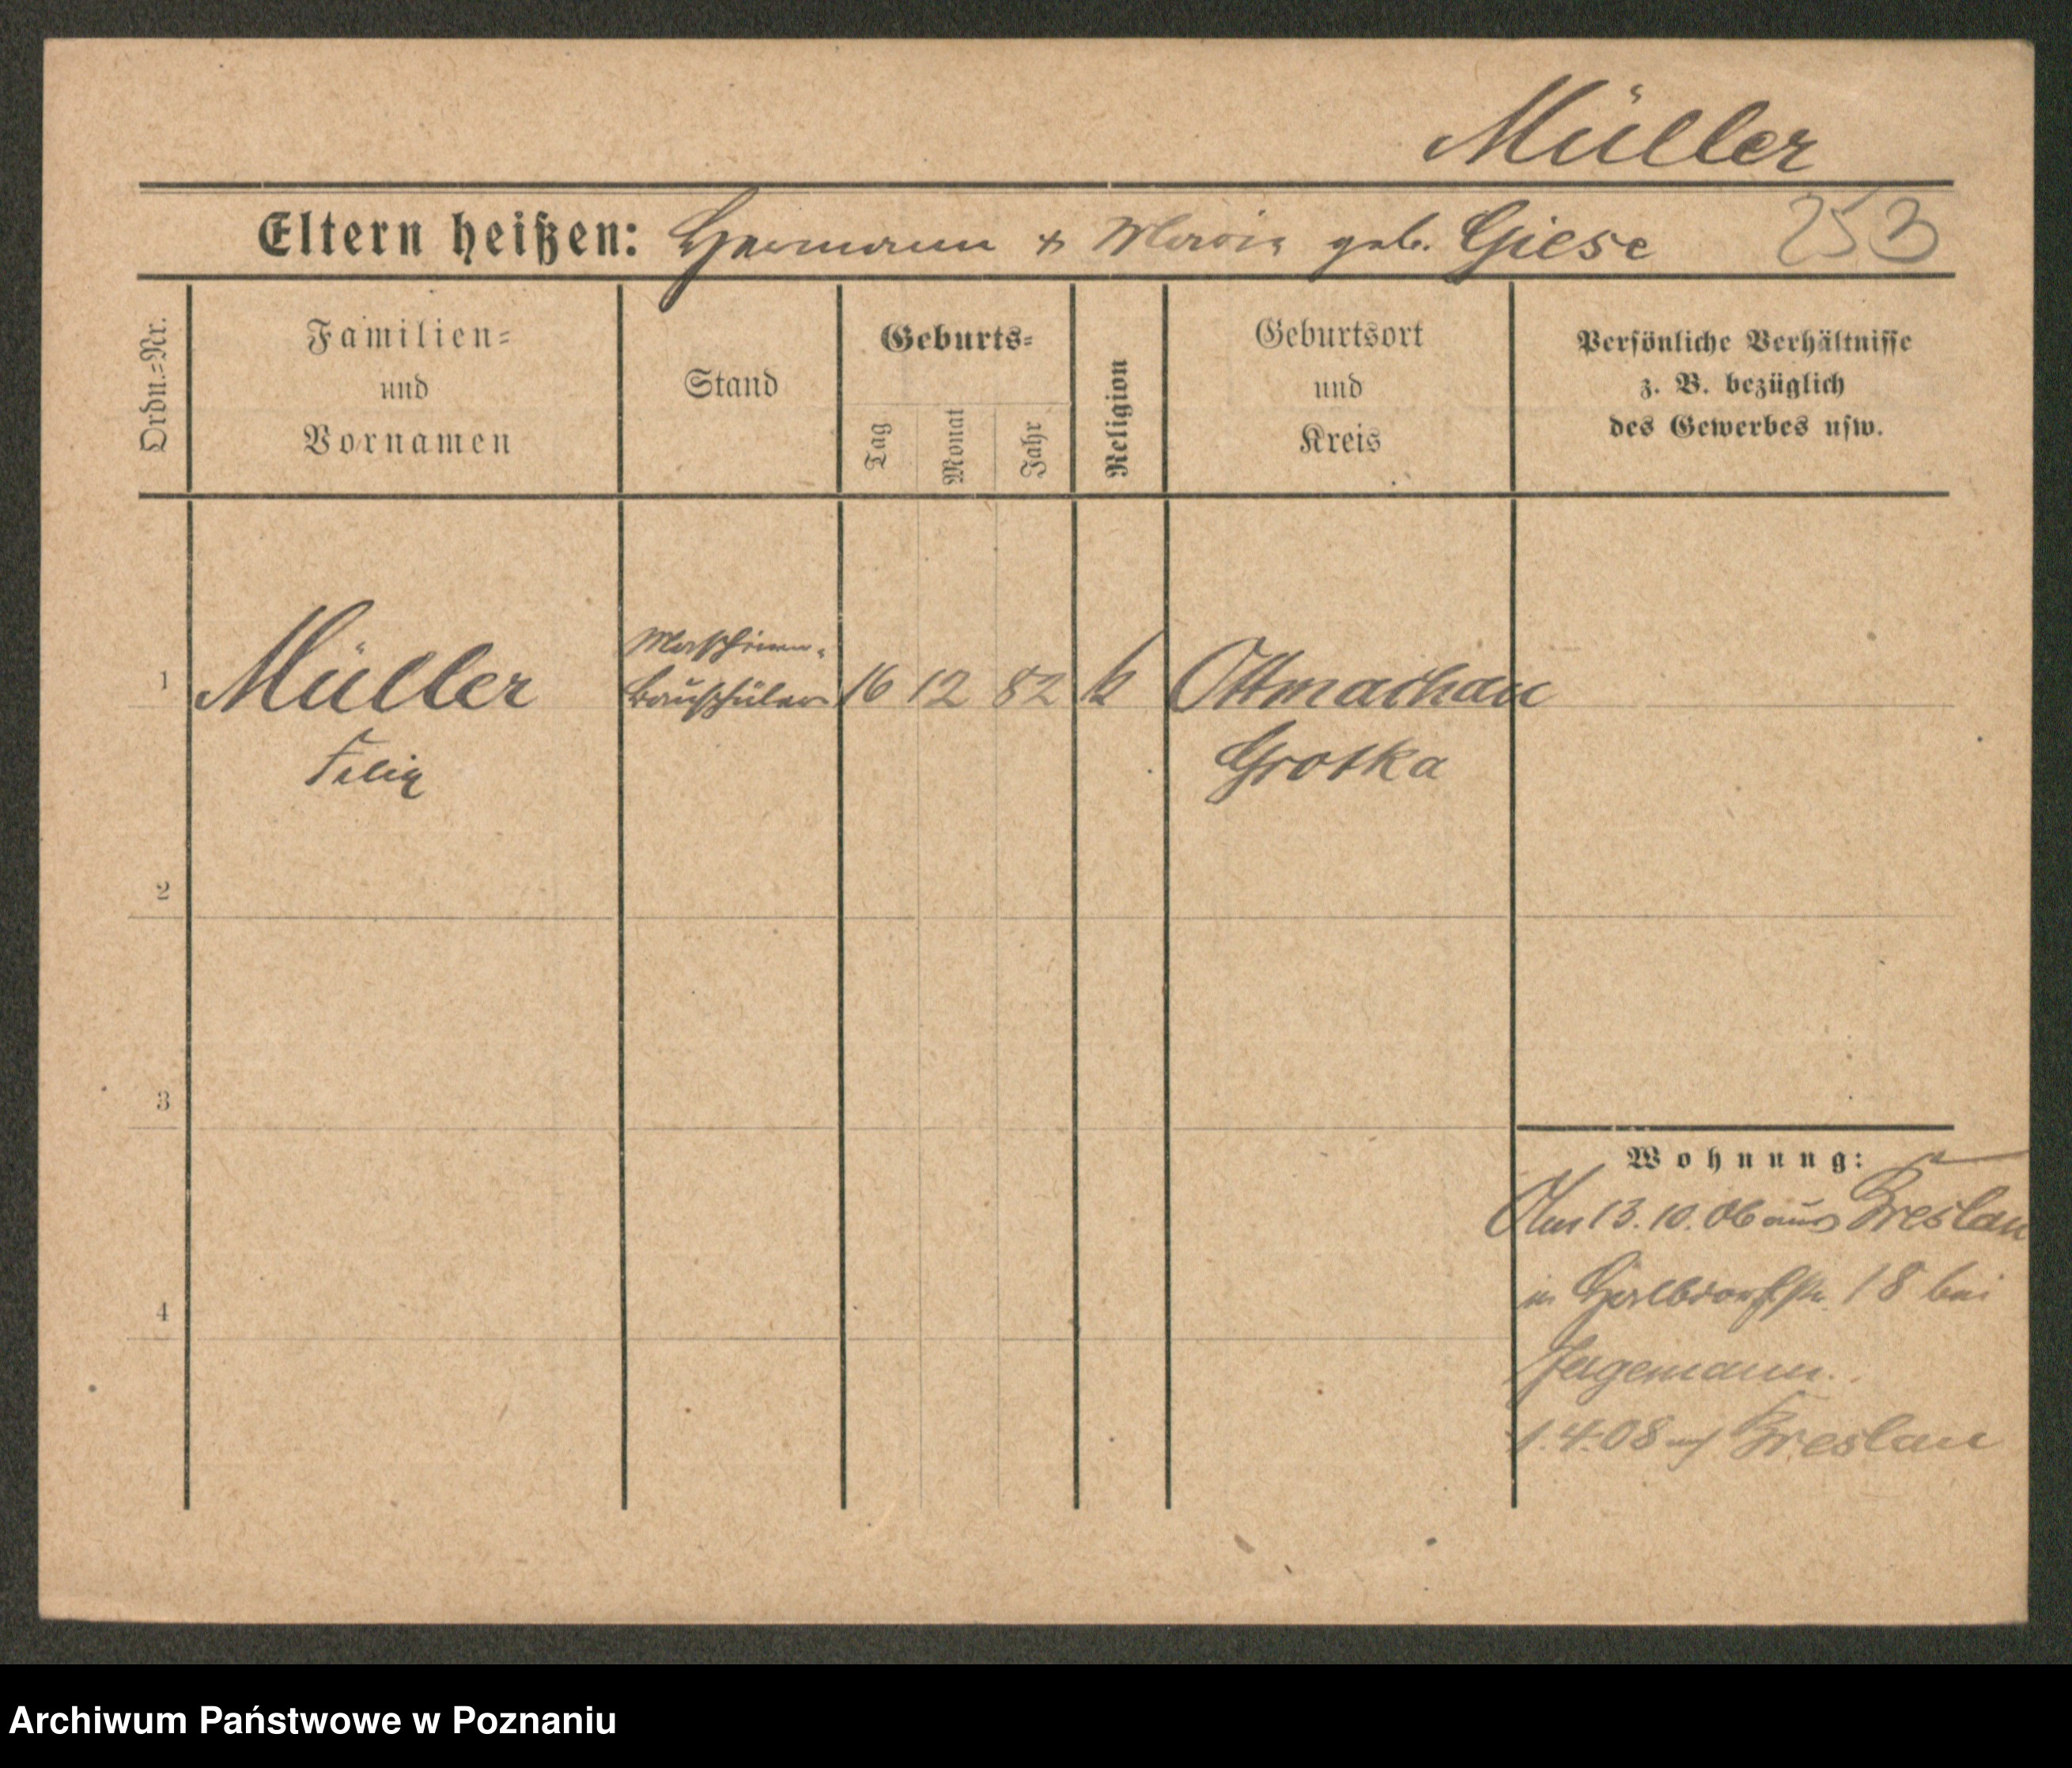 Müller
Eltern heißen: Hermann & Maria geb. Giese 253
Ordn.-Nr.
Familien-
und
Vornamen
Stand
Geburts-
Tag
Monat
Jahr
Religion
Geburtsort
und
Kreis
Persönliche Verhältnisse
z. B. bezüglich
des Gewerbes usw.
Maschinen-
1 Müller bauschüler 16 12 82 k Ottmachau
Felix Grotka
2
3
Wohnung:
Am 13. 10. 06 aus Breslau
in 18 bei
4
Jagemann.
1.4.08 n/ Breslau
Archiwum Państwowe w Poznaniu